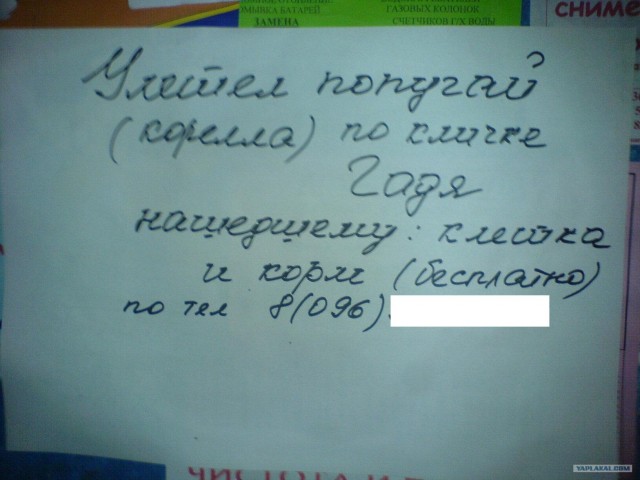 ОМЫВКА БАТАРЕЙ
ЗАМЕНА
ГАЗОВЫХ КОЛОНОК
СЧЕТЧИКОВ Г/Х ВОДЫ
сниме
Улетел попугай
(корелла) по кличке
Гадя
нашедшему: клетка
и корм (бесплатно)
по тел 8(096)
ЧИСТОТА И
YAPLAKAL.COM